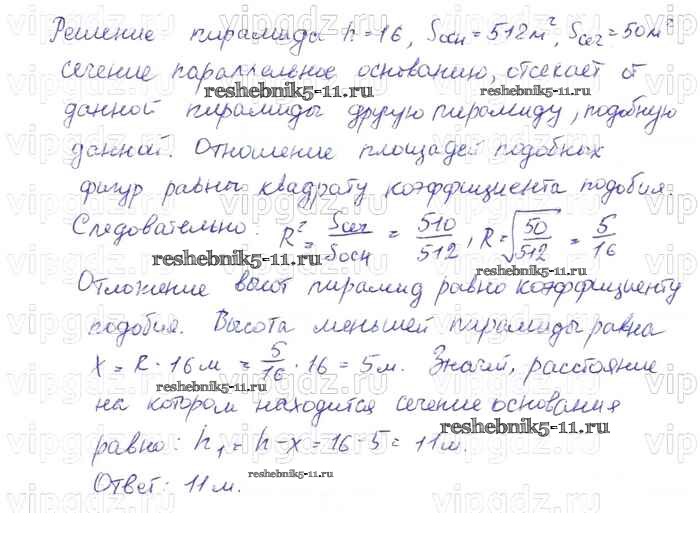 Решение пирамида h=16, Sосн=512м², Sсеч=50м²
сечение параллельное основанию, отсекает от
данной пирамиды другую пирамиду, подобную
данной. Отношение площадей подобных
фигур равны квадрату коэффициента подобия.
Следовательно: R² = Sсеч/Sосн = 510/512, R = √50/512 = 5/16
Отложение высот пирамид равно коэффициенту
подобия. Высота меньшей пирамиды равна
x = R · 16м = 5/16 · 16 = 5м. Значит, расстояние
на котором находится сечение основания
равно: h₁ = h-x = 16-5 = 11м.
Ответ: 11м.
reshebnik5-11.ru
reshebnik5-11.ru
reshebnik5-11.ru
reshebnik5-11.ru
reshebnik5-11.ru
reshebnik5-11.ru